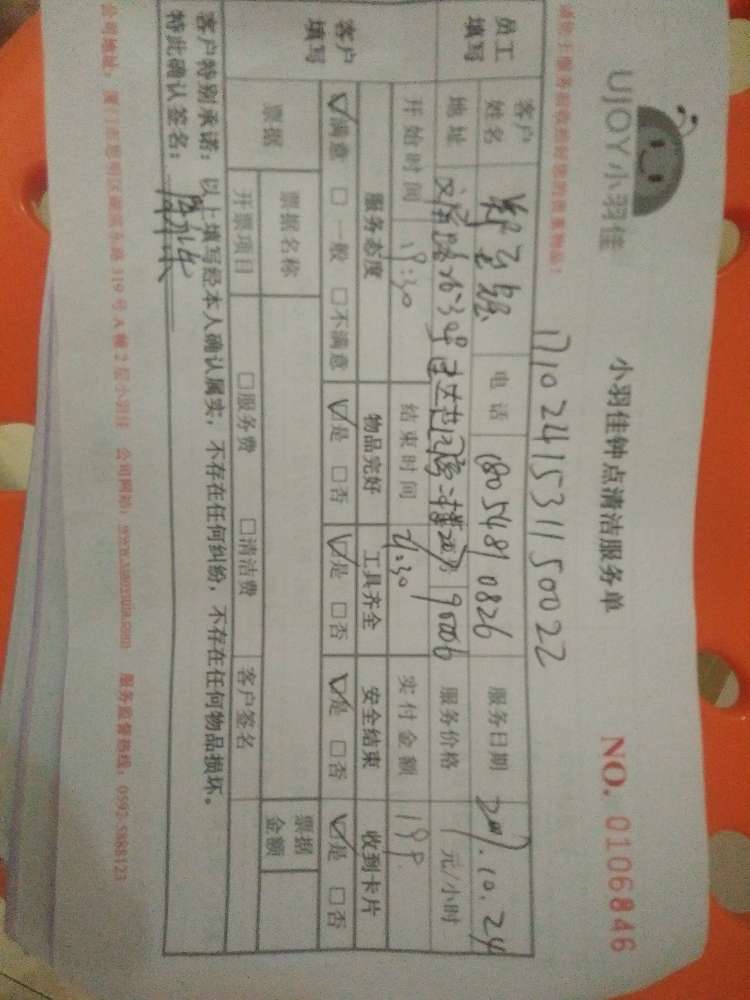 UJQY小羽佳
小羽佳钟点清洁服务单
NO. 0106846
请您于服务前收拾好您的贵重物品!
1710241531150022
员工填写
客户姓名
电话 18054810826
服务日期 2017.10.24
地址
服务价格 元/小时
开始时间 19:30
结束时间 21:30
实付金额
客户填写
服务态度 物品完好 工具齐全 安全结束 收到卡片
☑满意 □一般 □不满意 ☑是 □否 ☑是 □否 ☑是 □否 ☑是 □否
票据
票据名称
票据金额
开票项目 □服务费 □清洁费 客户签名
客户特别承诺:以上填写经本人确认属实,不存在任何纠纷,不存在任何物品损坏。
特此确认签名:
公司地址:厦门市思明区 319号A幢2层小羽佳 公司网站:www.xiaoyujia.com 服务监督热线:0592-5888123